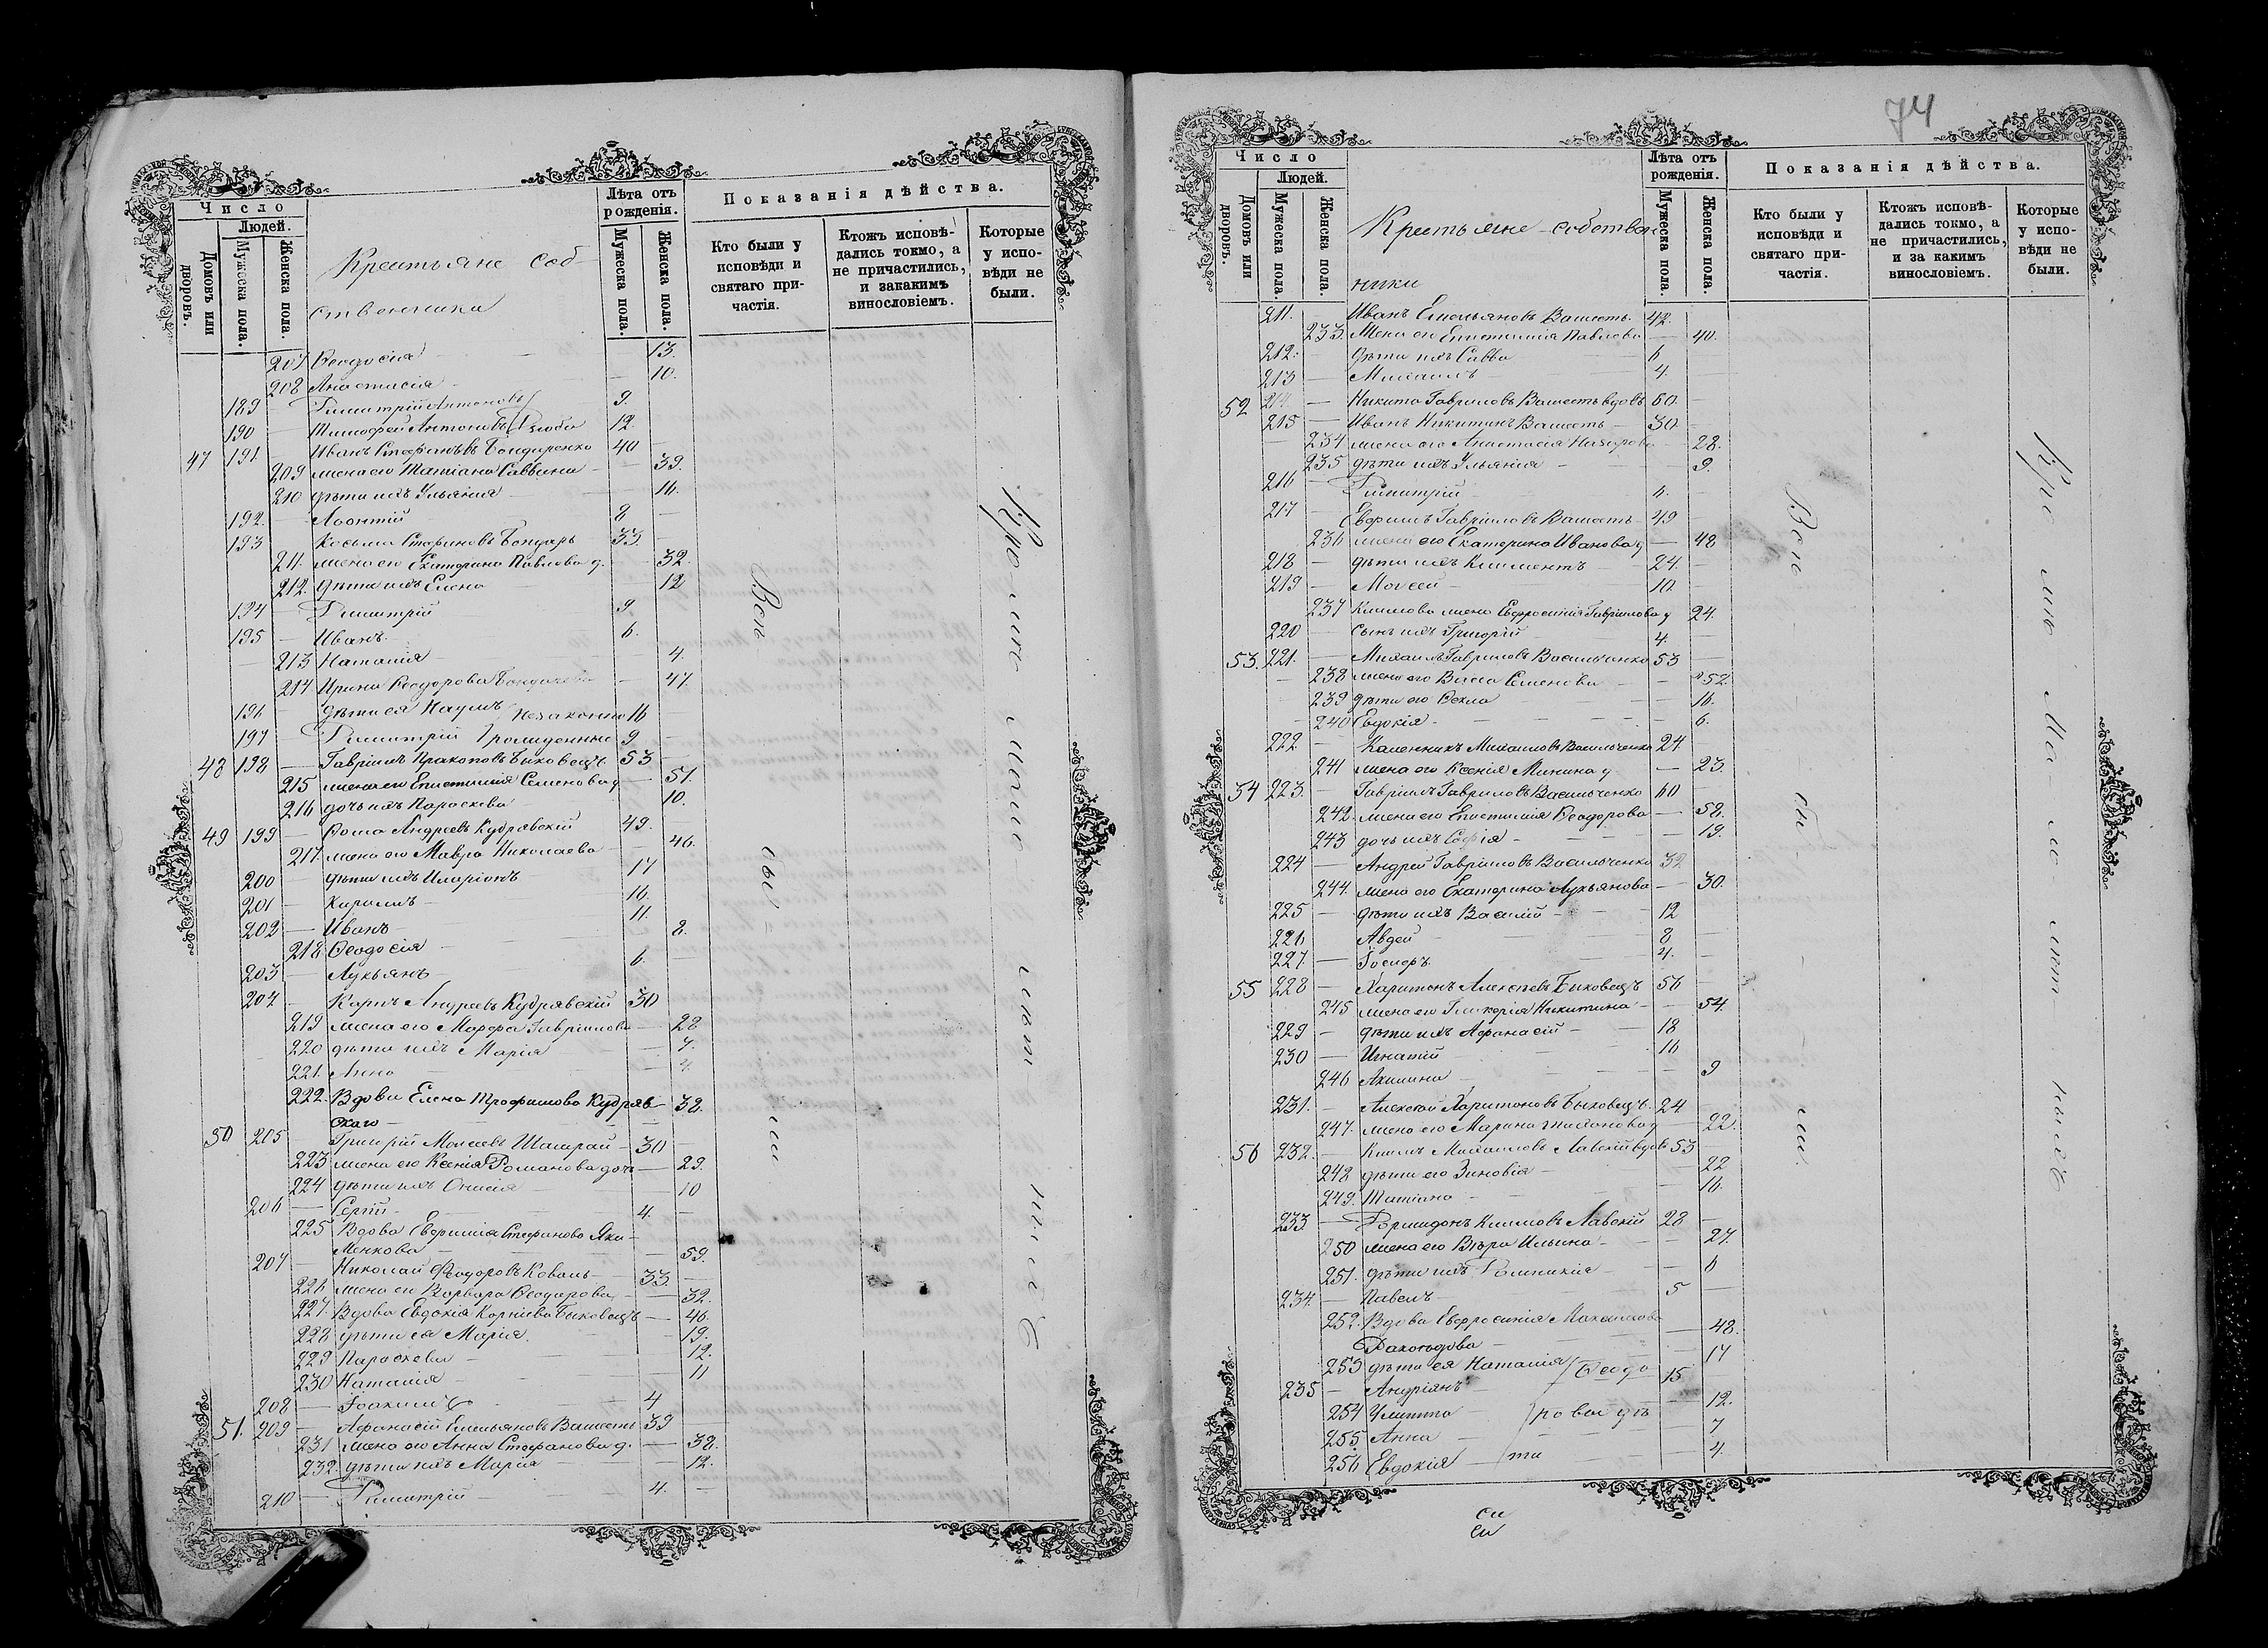 Число
Людей.
Домовъ или дворовъ.
Мужеска пола.
Женска пола.
Крестьяне соб-
ственники
Лѣта отъ рожденія.
Мужеска пола.
Женска пола.
Показанія дѣйства.
Кто были у исповѣди и святаго причастія.
Ктожъ исповѣдались токмо, а не причастились, и закакимъ винословіемъ.
Которые у исповѣди не были.
207 Ѳеодосія 13.
208 Анастасія 10.
189 Димитрій Антоновъ 9.
190 Тимофей Антоновъ Дзюба 12.
47 191 Иванъ Стефановъ Бондаренко 40
209 жена его Татіана Саввина 39.
210 дѣти ихъ Ульянія 16.
192. Леонтій 8
193 Косьма Стефановъ Бондарь 33.
211. жена его Екатерина Павлова д. 32.
212. дѣти ихъ Елена 12
194 Димитрій 9
195 Иванъ 6.
213 Наталія 4.
214. Ирина Ѳеодорова 47.
196 дѣти ея Наумъ незаконно 16
197 Димитрій рожденные 9
48 198 Гавріилъ Прокоповъ Быковецъ 53
215 жена его Епистимія Семенова д 51.
216 дочь ихъ Параскева 10.
49 199 Ѳома Андреевъ Кудрявскій 49.
217. жена его Мавра Николаева 46.
200 дѣти ихъ Иларіонъ 17
201 Кириллъ 16.
202 Иванъ 11.
218 Ѳеодосія 8.
203 Лукьянъ 6.
204 Карпъ Андреевъ Кудрявскій 30
219 жена его Марѳа Гавріилова 28
220 дѣти ихъ Марія 7.
221. Анна 4.
222. Вдова Елена Трофимова Кудряв- 38.
скаго
50 205 Григорій Моисеевъ Шамрай 30
223 жена его Ксенія Романова дочь 29.
224 дѣти ихъ Онисія 10
206 Сергій 4.
225 Вдова Евфимія Стефанова Яки-
менкова 59.
207 Николай Ѳеодоровъ Коваль 33.
226 жена его Варвара Ѳеодорова 32.
227. Вдова Евдокія Корніева Быковецъ 46.
228 дѣти ея Марія 19.
229 Параскева 12.
230 Наталія 11
208 Іоакимъ 4
51. 209 Афанасій Емельяновъ Вашеть 39
231 жена его Анна Стефанова д. 38.
232. дѣти ихъ Марія 12.
210 Димитрій 4.
74
Число
Людей.
Домовъ или дворовъ.
Мужеска пола.
Женска пола.
Крестьяне собствен-
ники
Лѣта отъ рожденія.
Мужеска пола.
Женска пола.
Показанія дѣйства.
Кто были у исповѣди и святаго причастія.
Ктожъ исповѣдались токмо, а не причастились, и за какимъ винословіемъ.
Которые у исповѣди не были.
211. Иванъ Емельяновъ Вашеть 42.
233. Жена его Епистимія Павлова 40.
212. дѣти ихъ Савва 6
213 Михаилъ 4.
52 214. Никита Гавриловъ Вашеть вдовъ 60.
215 Иванъ Никитинъ Вашеть 30
234 жена его Анастасія Назарова 28.
235 дѣти ихъ Ульянія 9.
216 Димитрій 6.
217 Евфимъ Гавріиловъ Вашеть 49
236 жена его Екатерина Иванова д 48
218 дѣти ихъ Климентъ 24.
219 Моисей 10.
237 Климова жена Евфросинія Гавріилова д 24.
220 сынъ ихъ Григорій 4.
53. 221. Михаилъ Гавриловъ Васильченко 53
238 жена его Васса Семенова 52.
239 дѣти его Ѳекла 16.
240 Евдокія 6.
222 Каленникъ Михаиловъ Васильченко 24
241 жена его Ксенія Минина д 23.
54 223. Гавріилъ Гавриловъ Васильченко 60
242. жена его Епистимія Ѳеодорова 58.
243 дочь ихъ Софія 19.
224 Андрей Гавріиловъ Васильченко 32
244. жена его Екатерина Лукьянова 30.
225 дѣти ихъ Василій 12
226 Авдей 8
227. Іосифъ 4.
55 228 Харитонъ Алексѣевъ Быковецъ 56
245 жена его Гликерія Никитина 54.
229 дѣти ихъ Афанасій 18
230 Игнатій 16
246 Акилина 9
231. Алексѣй Харитоновъ Быковецъ 24
247. жена его Марина Тихонова д 22.
56 232. Климъ Михаиловъ Лавскій вдовъ 53
248 дѣти его Зиновія 22
249. Татіана 16.
233 Спиридонъ Климовъ Лавскій 28
250 жена его Вѣра Ильина 27.
251. дѣти ихъ Домникія 6
234. Павелъ 5
252. Вдова Евфросинія
48.
253 дѣти ея Наталія Ѳеодо 17
235 Андріянъ 15
254 Улитта рова дѣ 12.
255 Анна 7
256 Евдокія ти 4.